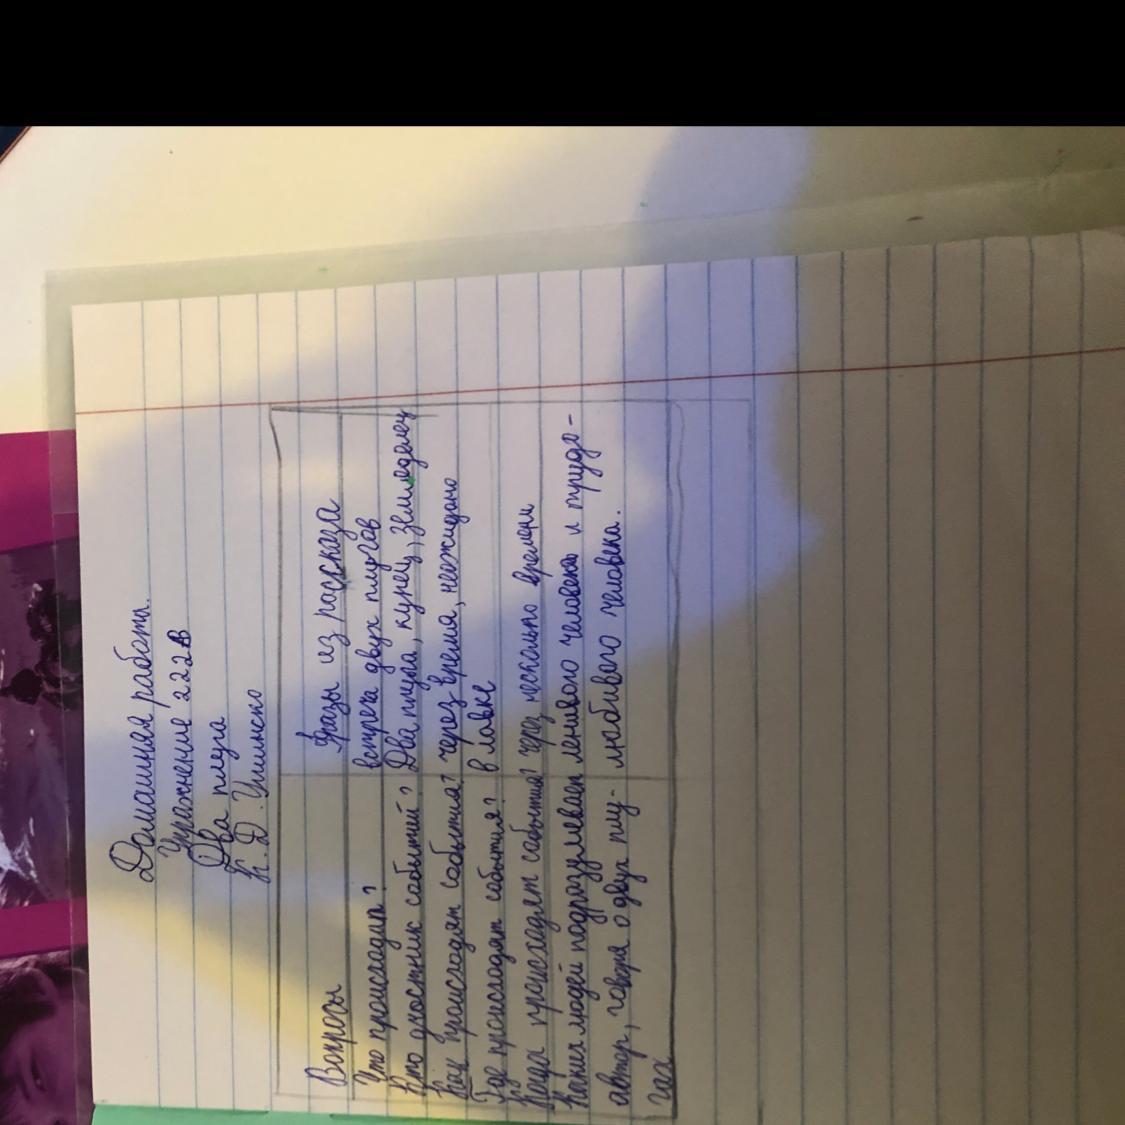 Домашняя работа.
Упражнение 222В
Два плуга
К. Д. Ушинско
Вопросы Фразы из рассказа
Что происходит? встреча двух плугов
Кто участник событий? Два плуга, купец, земледелец
Как происходят события? через время, неожидано
Где происходят события? в лавке
Когда происходят события? через несколько времени
Каких людей подразумевает ленивого человека и трудо-
автор, говоря о двух плу- любивого человека.
гах